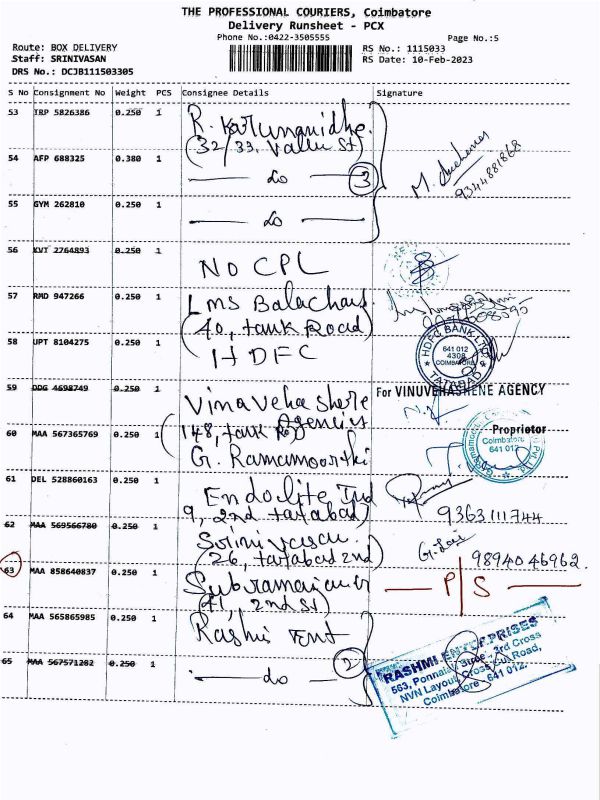 THE PROFESSIONAL COURIERS, Coimbatore
Delivery Runsheet - PCX
Phone No.:0422-3505555
Page No.:5
Route: BOX DELIVERY
Staff: SRINIVASAN
DRS No.: DCJB111503305
RS No.: 1115033
RS Date: 10-Feb-2023
S No Consignment No Weight PCS Consignee Details Signature
53 TRP 5826386 0.250 1 R. Karunanidhe.
(32/33. Vallu St)
54 AFP 688325 0.380 1 do 3
M.
9344881868
55 GYM 262810 0.250 1 do
56 KVT 2764893 0.250 1 NO CPL
57 RMD 947266 0.250 1 Lms Balachars
(40, tank Road)
58 UPT 8104275 0.250 1 HDFC
HDFC BANK LTD
641 012
4308
COIMBATORE
TATABAD
59 DDG 4698749 0.250 1 Vinaveha shere
Agencies
For VINUVEHASHENE AGENCY
Proprietor
60 MAA 567365769 0.250 1 148, tank RD
G. Ramamoorthi
Coimbatore
641 012
61 DEL 528860163 0.250 1 Endolite Ind
9, 2nd tatabad)
9363111744
62 MAA 569566780 0.250 1 Srinivasan.
(26, tatabad 2nd)
9894046962.
63 MAA 858640837 0.250 1 Subramaniam
(41, 2nd St)
P/S
64 MAA 565865985 0.250 1 Rashmi Ent
65 MAA 567571282 0.250 1 do 2
RASHMI ENTERPRISES
563, Ponnaiah Street - 3rd Cross
NVN Layout, Cross Cut Road,
Coimbatore - 641 012